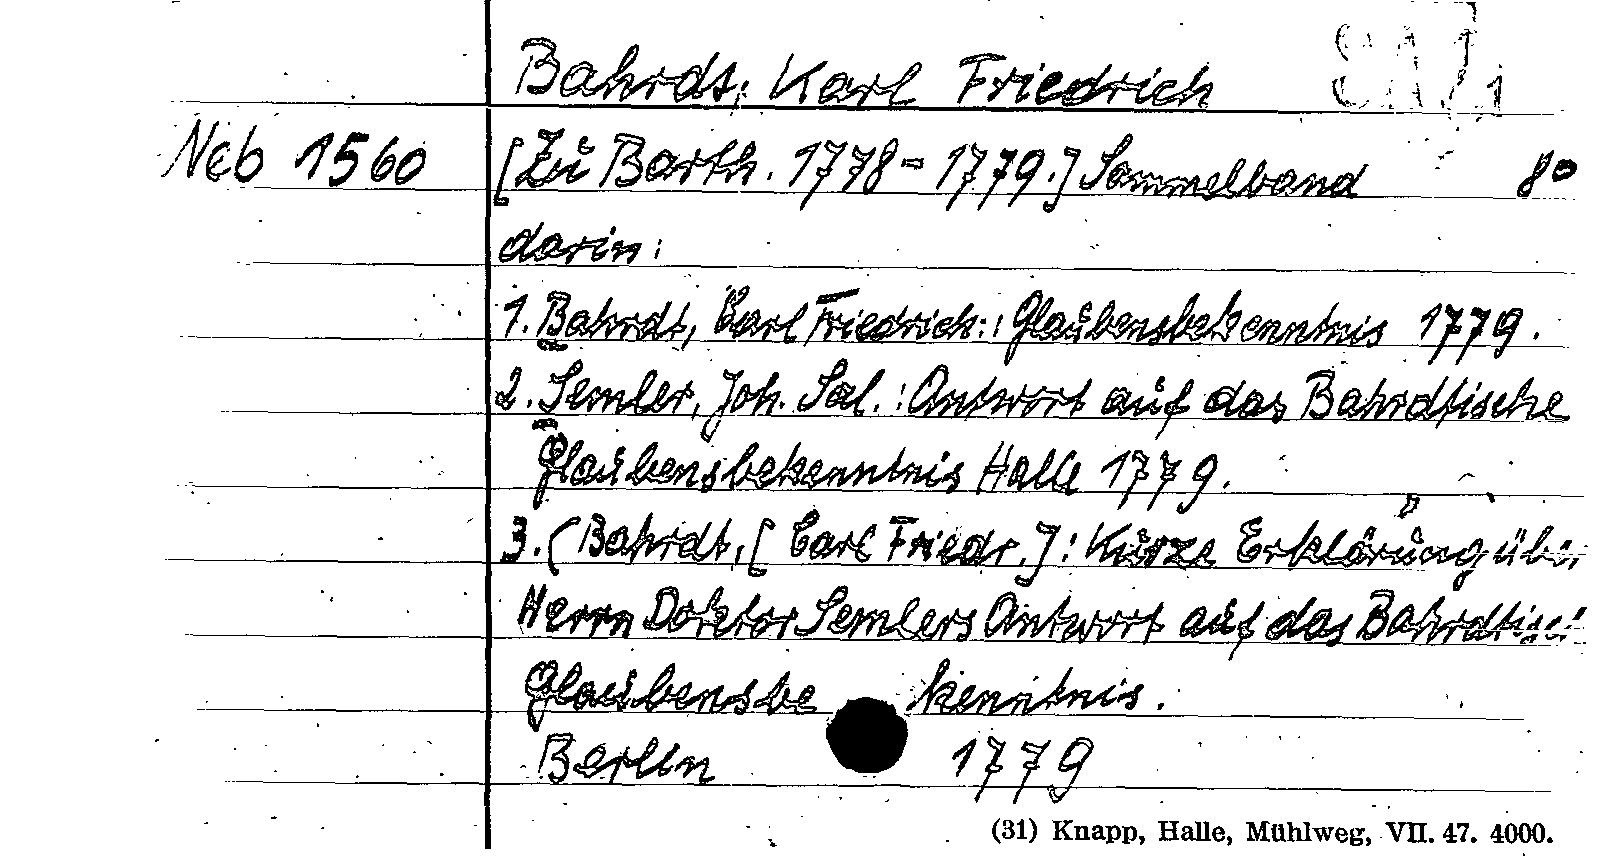 Bahrdt, Karl Friedrich
Neb 1560 [Zu Barth. 1778-1779.] Sammelband 8°
darin:
1. Bahrdt, Carl Friedrich: Glaubensbekenntnis 1779.
2. Semler, Joh. Sal.: Antwort auf das Bahrdtische
Glaubensbekenntnis Halle 1779.
3. (Bahrdt, [Carl Friedr.]: Kurze Erklärung über
Herrn Doktor Semlers Antwort auf das
Glaubensbekenntnis.
Berlin 1779
(31) Knapp, Halle, Mühlweg, VII. 47. 4000.